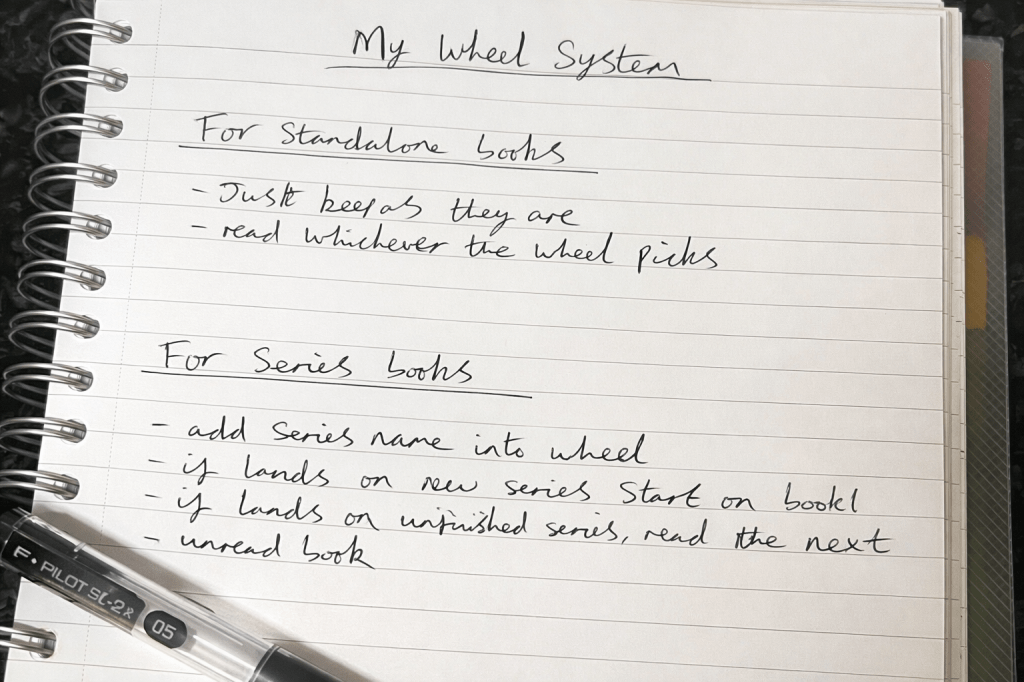 My Wheel System
For Standalone books
- Just keep as they are
- read whichever the wheel picks
For Series books
- add series name into wheel
- if lands on new series Start on book 1
- if lands on unfinished series, read the next
- unread book
PILOT
05